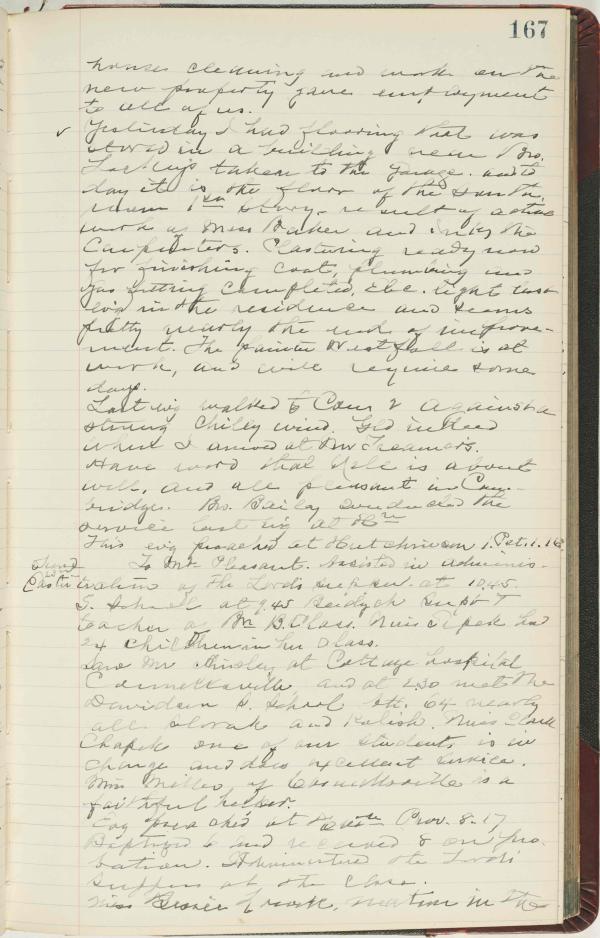 167
houses cleaning and work on the
new property gave employment
to all of us.
✓ Yesterday I had flooring that was
stored in a building near Bro.
taken to the garage. and to
day it is the floor of the
room 1st story - result of active
work of Miss Baker and the
Carpenters. Plastering ready now
for finishing coat, plumbing and
gas fitting completed, etc. light last
evg in the residence and seems
pretty nearly the end of improve-
ment. The painter Westfall is at
work, and will require some
days.
Last evg walked to Com 2 against a
strong chilly wind. Glad indeed
when I arrived at Mr
Have word that is about
well, and all pleasant in Cam-
bridge. Bro. Bailey conducted the
service last evg at
This evg preached at Hutchinson 1. Pet. 1.
To Mt Pleasant. Assisted in adminis-
Easter tration of the Lord's supper. at 10.45.
S. School at 9.45 Supt
teacher of B. Class. Miss had
24 children in her class.
Saw Mr at Cottage hospital
Connellsville and at 2.30 met the
Davidson S. School 64 nearly
all Slovak and Polish. Miss Clara
Chapek one of our students is in
charge and does excellent service.
Miss Miller of Connellsville is a
faithful helper.
Evg preached at Prov. 8.17
Baptized 6 and received 8 on pro-
bation. Administered the Lord's
Supper at the close.
Miss matron in the